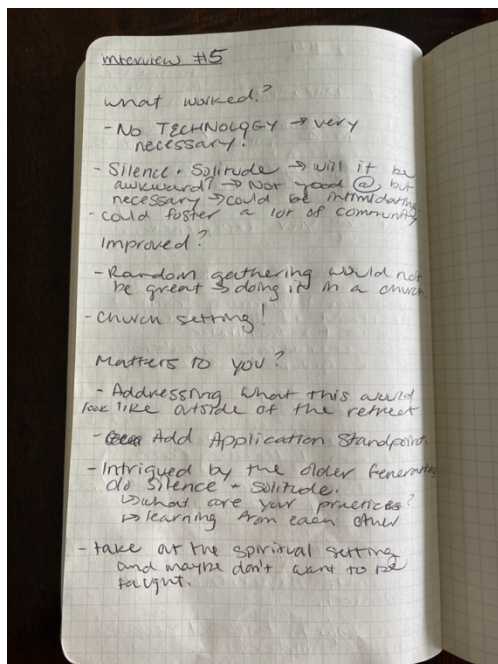 interview #5
what worked?
- NO TECHNOLOGY → very
necessary!
- Silence + Solitude → will it be
awkward? → Not good @, but
necessary → could be intimidating
- could foster a lot of community
Improved?
- Random gathering would not
be great → doing it in a church
- church setting!
Matters to you?
- Addressing what this would
look like outside of the retreat
- Add Application Standpoint
- Intrigued by the older Generation
do Silence + Solitude.
↳ what are your practices?
↳ learning from each other
- take out the spiritual setting
and maybe don't want to be
taught.